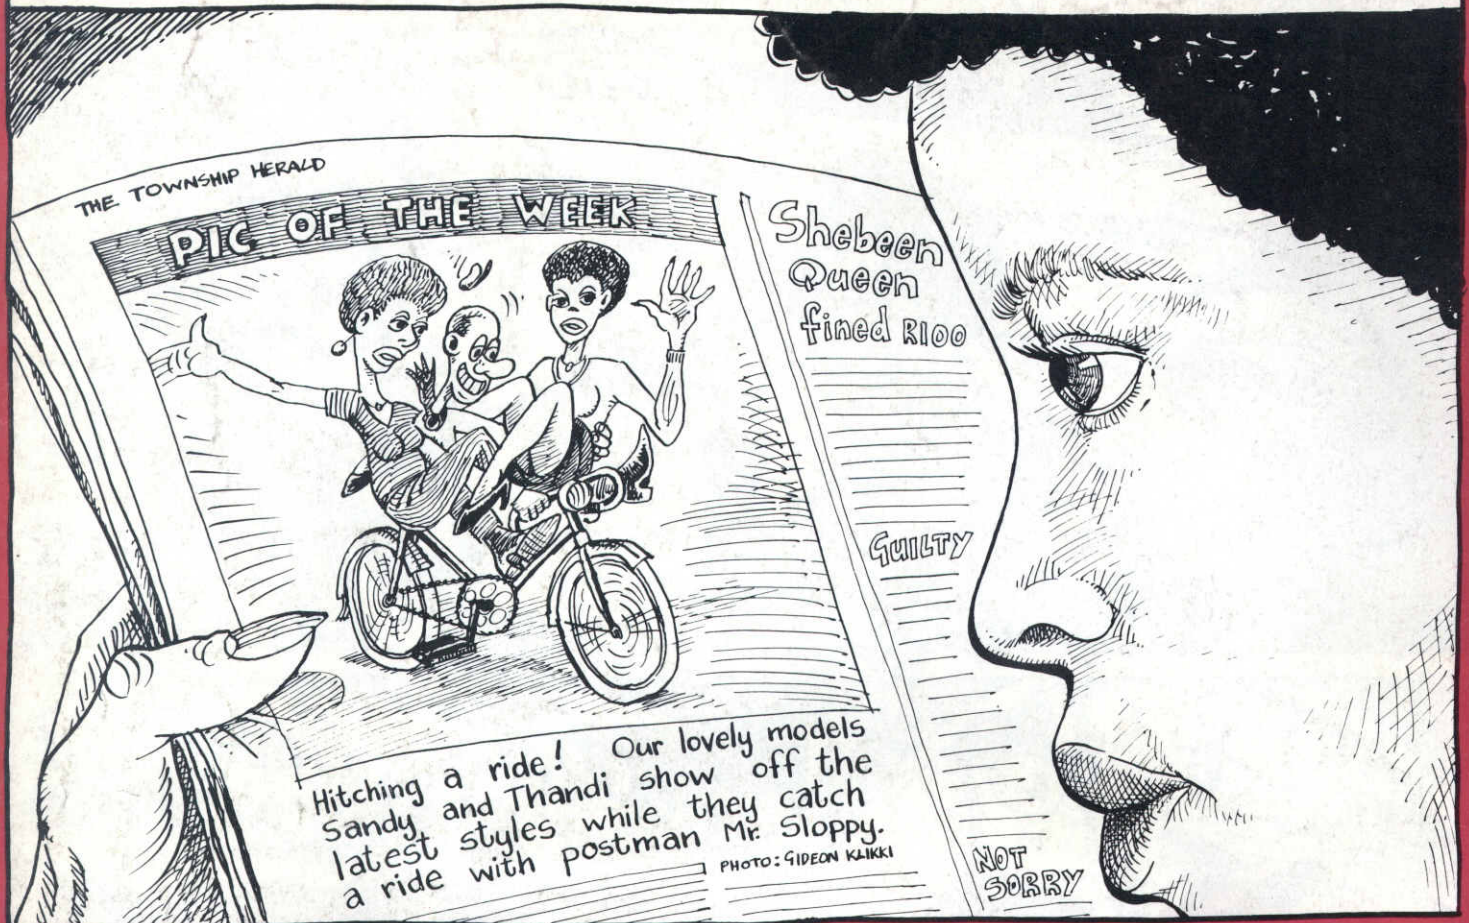 THE TOWNSHIP HERALD
PIC OF THE WEEK
Hitching a ride! Our lovely models
Sandy and Thandi show off the
latest styles while they catch
a ride with postman Mr. Sloppy.
PHOTO: GIDEON KLIKKI
Shebeen
Queen
fined R100
GUILTY
NOT
SORRY